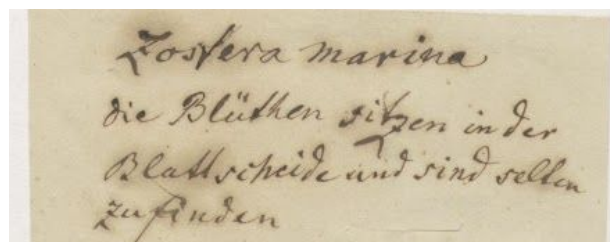 Zostera marina
die Blüthen sitzen in der
Blattscheide und sind selten
zu finden